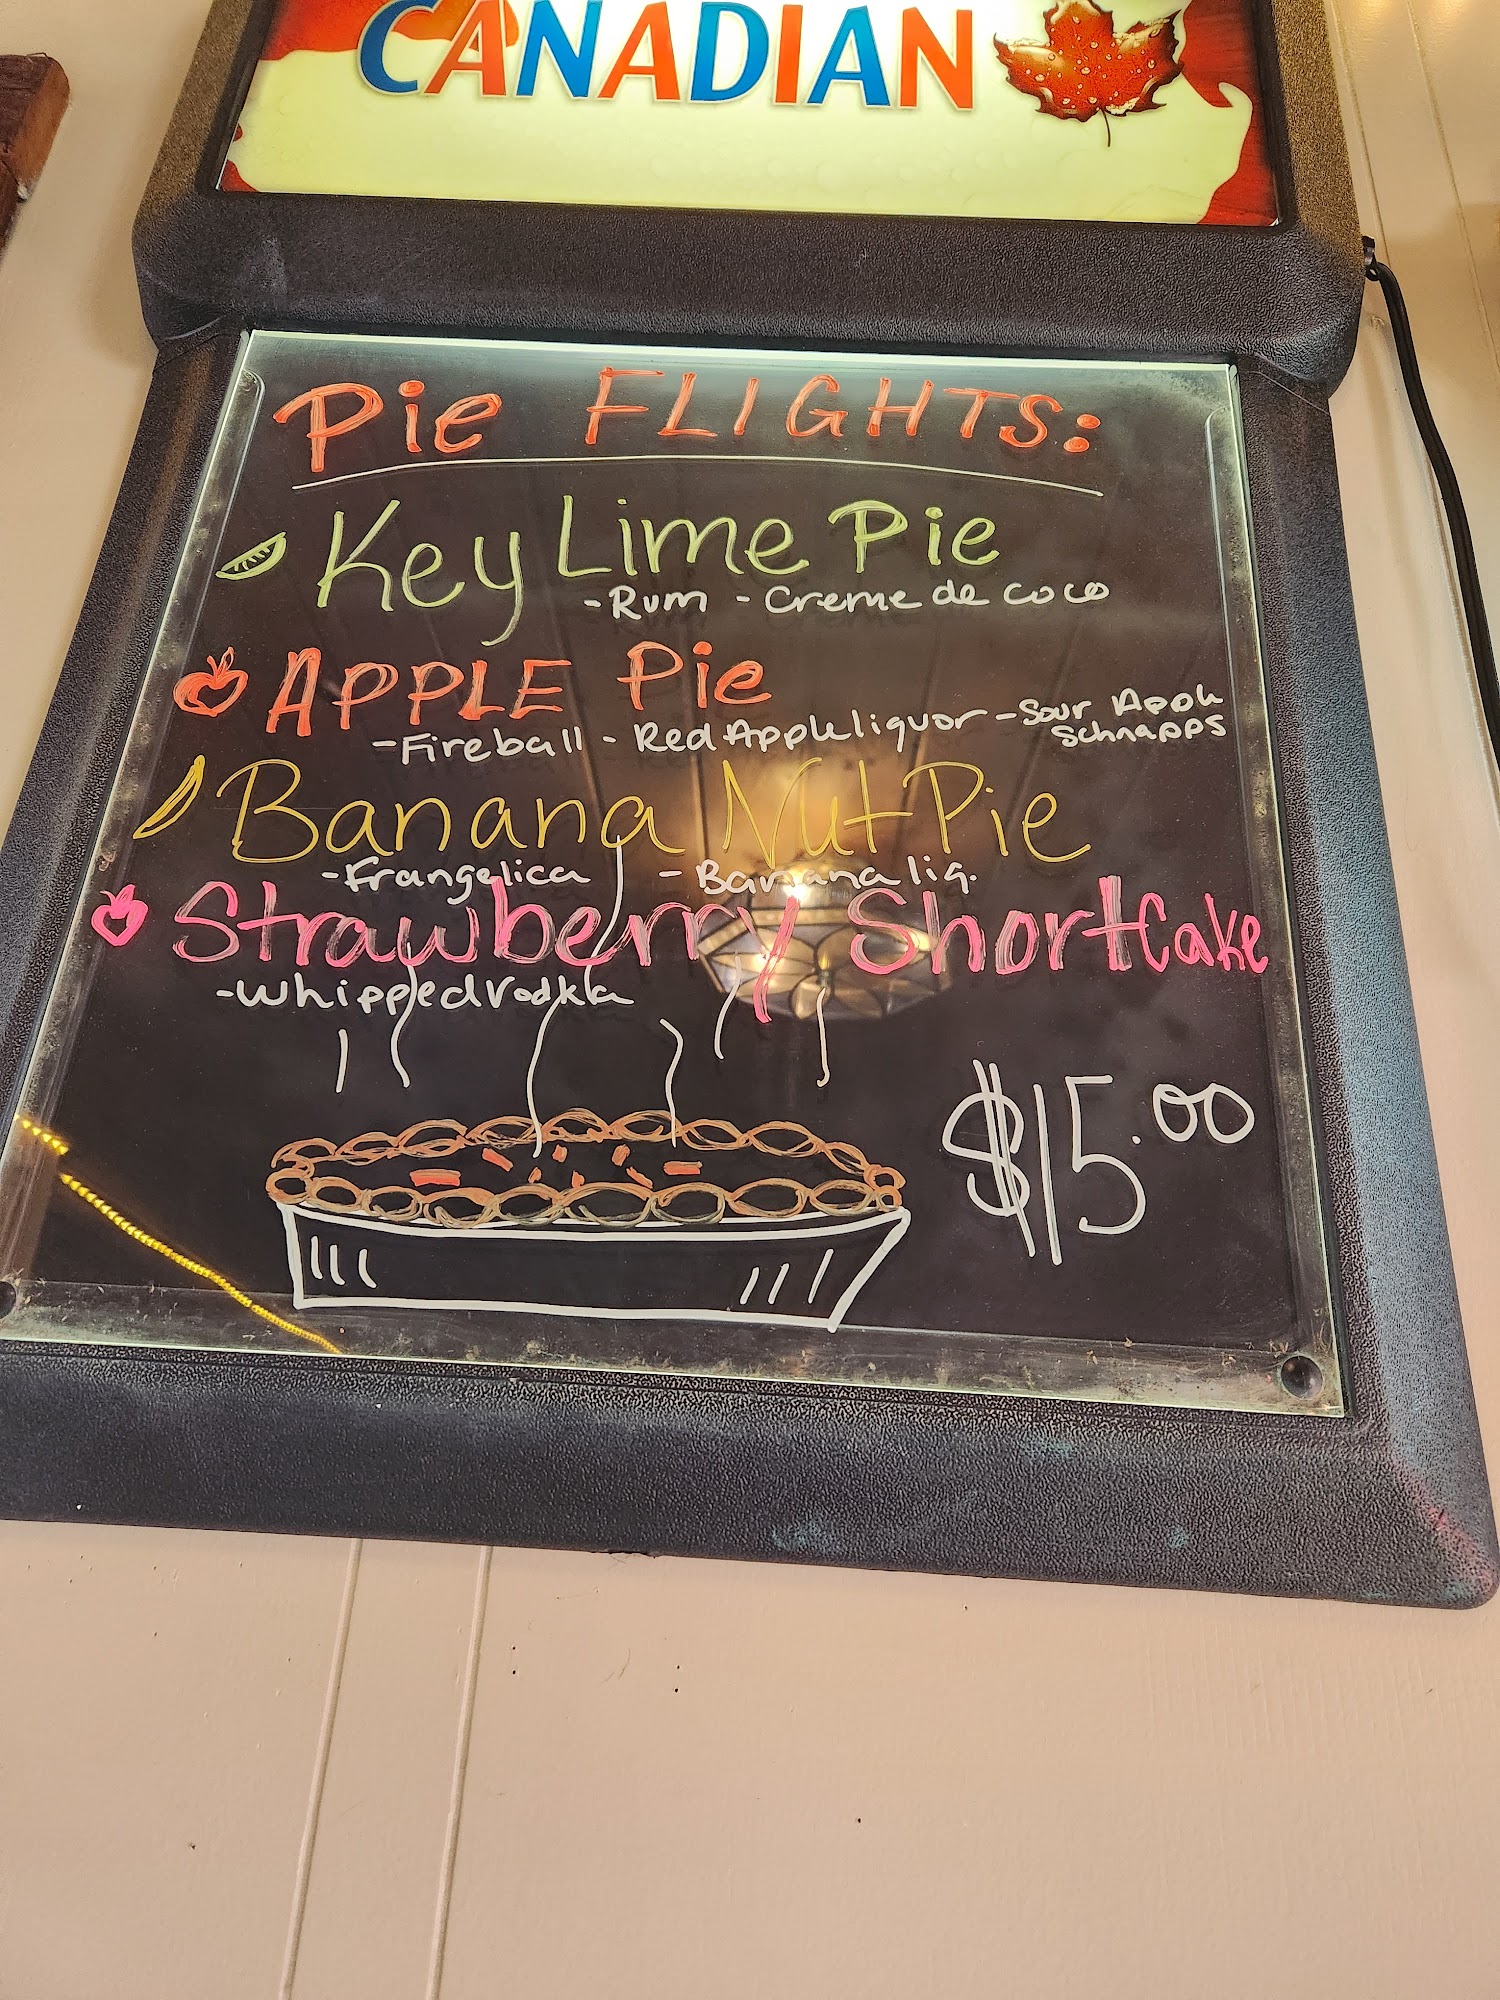 CANADIAN
Pie FLIGHTS:
Key Lime Pie
-Rum -Creme de coco
APPLE Pie
-Fireball - Red Apple liquor -Sour Apple
Schnapps
Banana Nut Pie
-Frangelica - Banana liq.
Strawberry Shortcake
-Whipped Vodka
$15.00